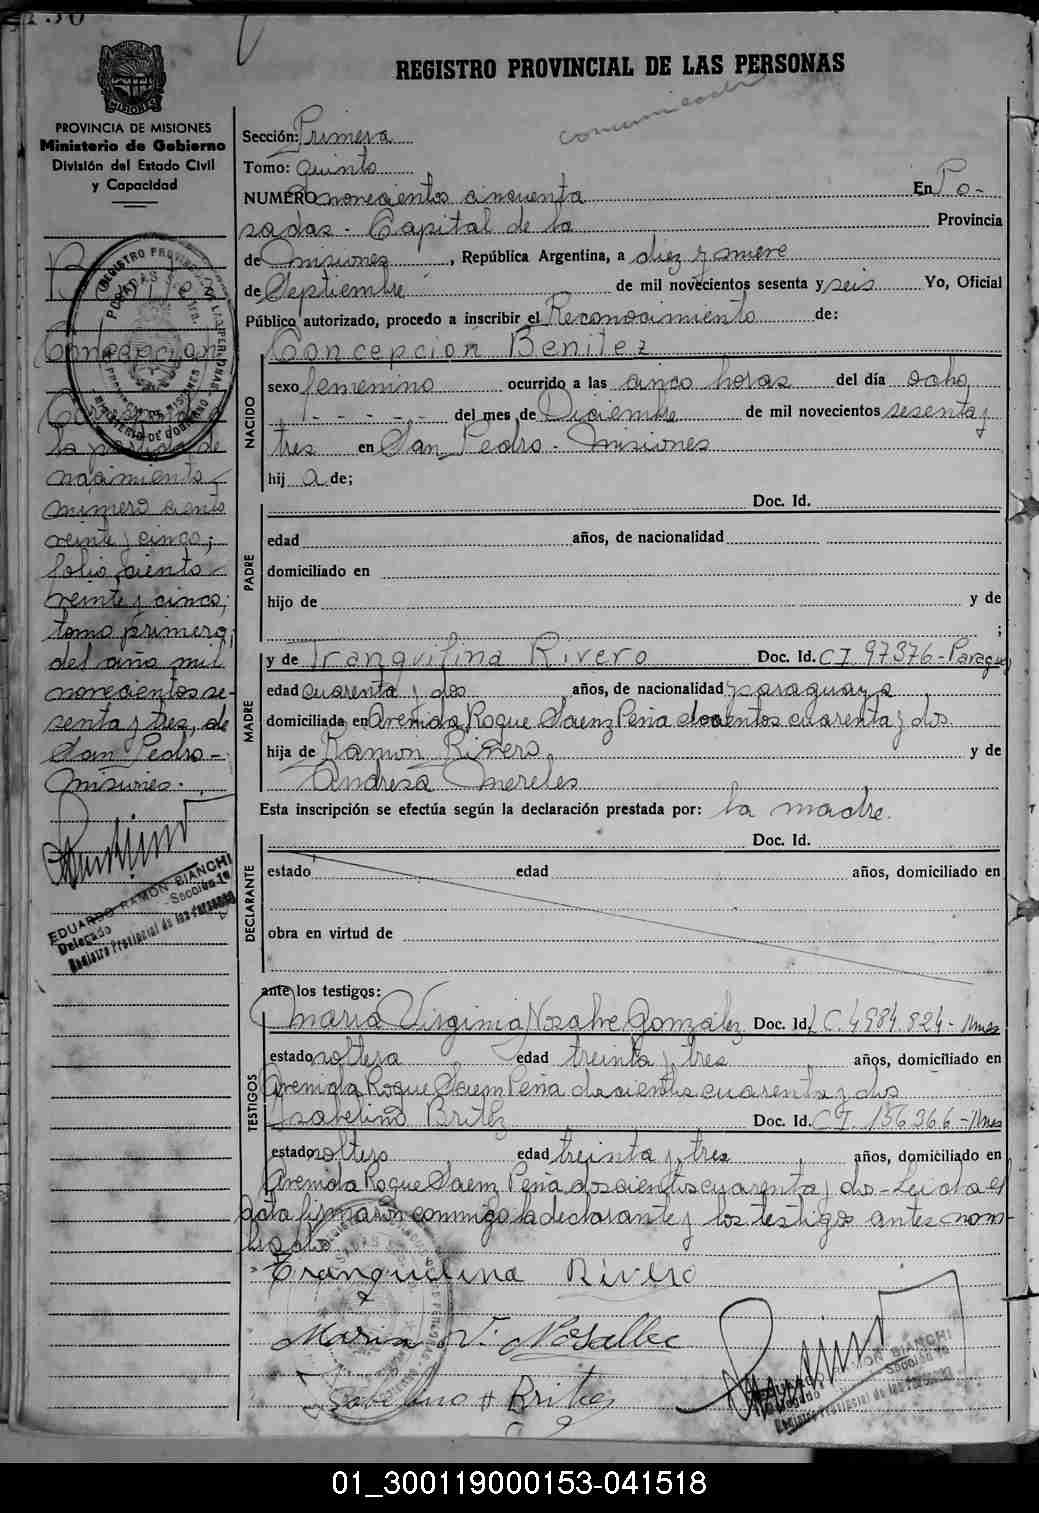 REGISTRO PROVINCIAL DE LAS PERSONAS
comunicada
MISIONES
PROVINCIA DE MISIONES
Ministerio de Gobierno
División del Estado Civil
y Capacidad
Sección: Primera
Tomo: quinto
NUMERO novecientos cincuenta En Po-
sadas - Capital de la Provincia
de Misiones, República Argentina, a diez y nueve
de Septiembre de mil novecientos sesenta y seis Yo, Oficial
Público autorizado, procedo a inscribir el Reconocimiento de:
NACIDO
Concepción Benitez
sexo femenino ocurrido a las cinco horas del día ocho
del mes de Diciembre de mil novecientos sesenta y
tres en San Pedro - Misiones
hij a de;
PADRE
Doc. Id.
edad años, de nacionalidad
domiciliado en
hijo de y de
;
MADRE
y de Tranquilina Rivero Doc. Id. C.I. 97376 - Paraguay
edad cuarenta y dos años, de nacionalidad paraguaya
domiciliada en Avenida Roque Saenz Peña doscientos cuarenta y dos
hija de Ramon Rivero y de
Andresa Mereles
Esta inscripción se efectúa según la declaración prestada por: la madre.
DECLARANTE
Doc. Id.
estado edad años, domiciliado en
obra en virtud de
ante los testigos:
TESTIGOS
Maria Virginia Nosalve Gonzalez Doc. Id. L.C. 4.984.824 - Mnes
estado soltera edad treinta y tres años, domiciliado en
Avenida Roque Saenz Peña doscientos cuarenta y dos
Isabelino Britez Doc. Id. C.I. 156366 - Mnes
estado soltero edad treinta y tres años, domiciliado en
Avenida Roque Saenz Peña doscientos cuarenta y dos - Leida el
acta firmaron conmigo la declarante y los testigos antes nom-
brados
Tranquilina Rivero
Maria V. Nosalbe
Isabelino Britez
Benitez
Concepcion
la partida de
nacimiento
número ciento
veinte y cinco;
folio ciento
veinte y cinco;
tomo primero,
del año mil
novecientos se-
senta y tres, de
San Pedro -
Misiones.
EDUARDO RAMON BIANCHI
Delegado Sección 1a
Registro Provincial de las Personas
RAMON BIANCHI
Delegado Sección 1a
Registro Provincial de las Personas
01_300119000153-041518